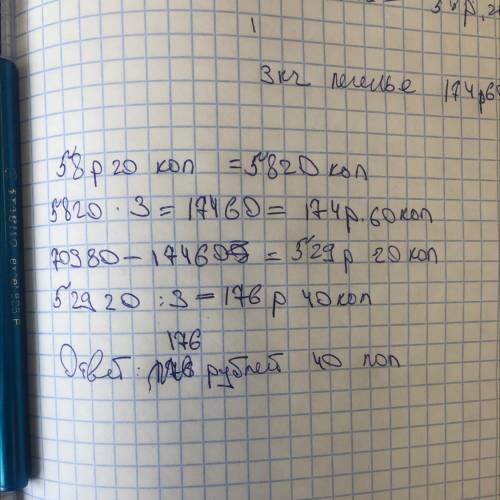 3 кг печенье 174р6
58 р 20 коп = 5820 коп
5820 · 3 = 17460 = 174р. 60коп
70380 - 17460 = 529 р 20 коп
52920 : 3 = 176 р 40 коп
176
Ответ: рублей 40 коп